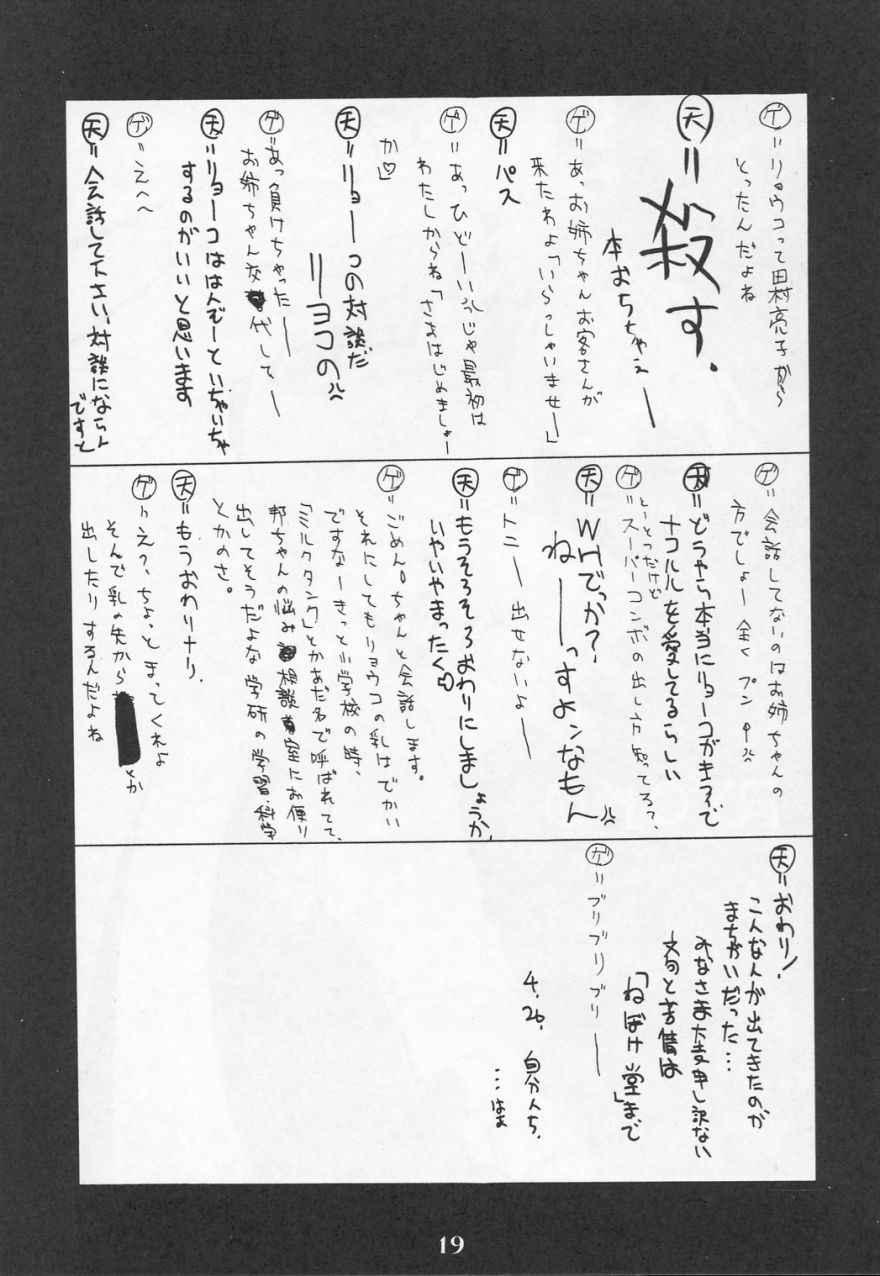 ゲ=リョウコって田村亮子から
とったんだよね
天=殺す.
本おちちゃえー
ゲ=あっお姉ちゃんお客さんが
来たわよ「いらっしゃいませー」
天=パス
ゲ=あっひどーいじゃ最初は
わたしからね「さあはじめましょー
か♡」
天=リョーコの対談だ
リョコの
ゲ=あっ負けちゃったー
お姉ちゃん交代してー
天=リョーコははんぞーといちゃいちゃ
するのがいいと思います
ゲ=えへへ
天=会話して下さい、対談にならん
ですと
ゲ=会話してないのはお姉ちゃんの
方でしょー全くプンプン
天=どうやら本当にリョーコがキライで
ナコルルを愛してるらしい
ゲ=とーとつだけど
スーパーコンボの出し方知ってる?、
天=WHでっか?、
ねーーっすよンなもん
ゲ=トニー出せないよー
天=もうそろそろおわりにしましょうか、
いやいやまったく
ゲ=ごめん。ちゃんと会話します。
それにしてもリョウコの乳はでかい
ですなーきっと小学校の時、
「ミルクタンク」とかあだ名で呼ばれてて、
邦ちゃんの悩み相談室にお便り
出してそうだよな学研の学習・科学
とかのさ。
天=もうおわりナリ.
ゲ=え?、ちょっとまってくれよ
そんで乳の先から
とか
出したりするんだよね
天=おわり!
こんな人が出てきたのが
まちがいだった…
みなさま大変申し訳ない
文句と苦情は
「ねぼけ堂」まで
ゲ=ブリブリブリー
4.26. 自分んち.
…はぁ
19